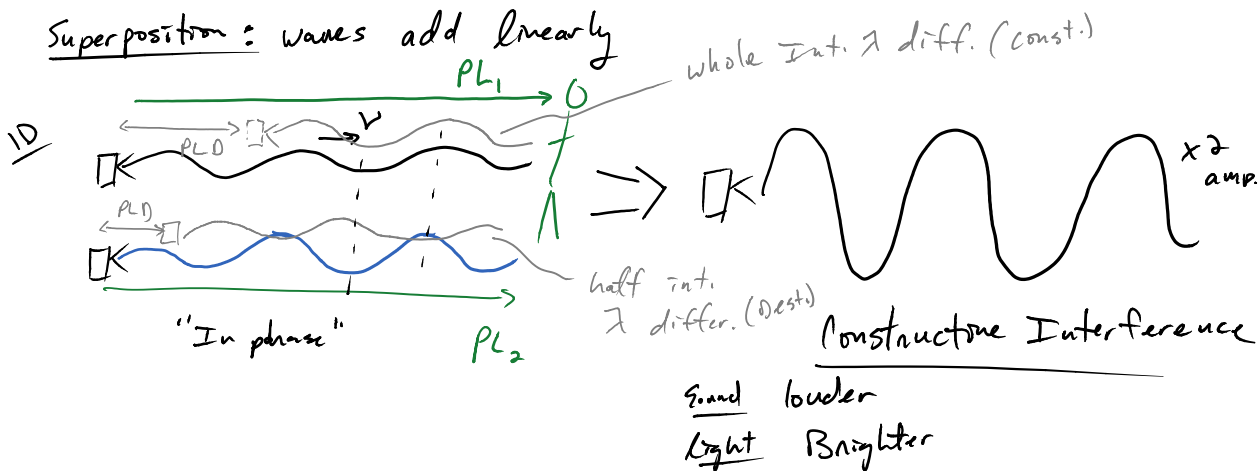 Superposition: waves add linearly
whole Int. λ diff. (const.)
PL₁
1D
PLD
v
x2
amp.
PLD
half int.
λ differ. (Dest.)
"In phase"
PL₂
Constructive Interference
Sound louder
Light Brighter